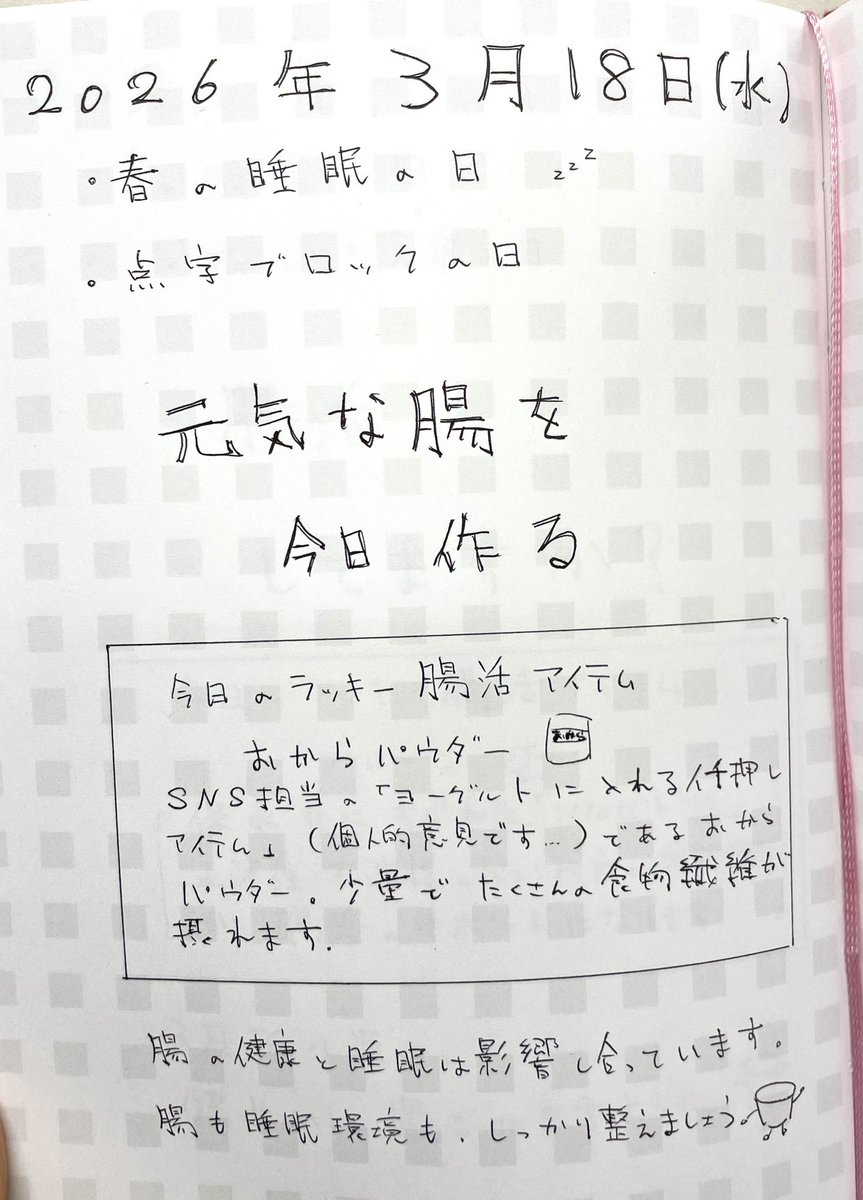 2026年3月18日(水)
・春の睡眠の日 zzz
・点字ブロックの日
元気な腸を
今日作る
今日のラッキー腸活アイテム
おからパウダー おから
SNS担当の「ヨーグルトに入れるイチ押し
アイテム」(個人的意見です…)であるおから
パウダー。少量でたくさんの食物繊維が
摂れます.
腸の健康と睡眠は影響し合っています。
腸も睡眠環境も、しっかり整えましょう。